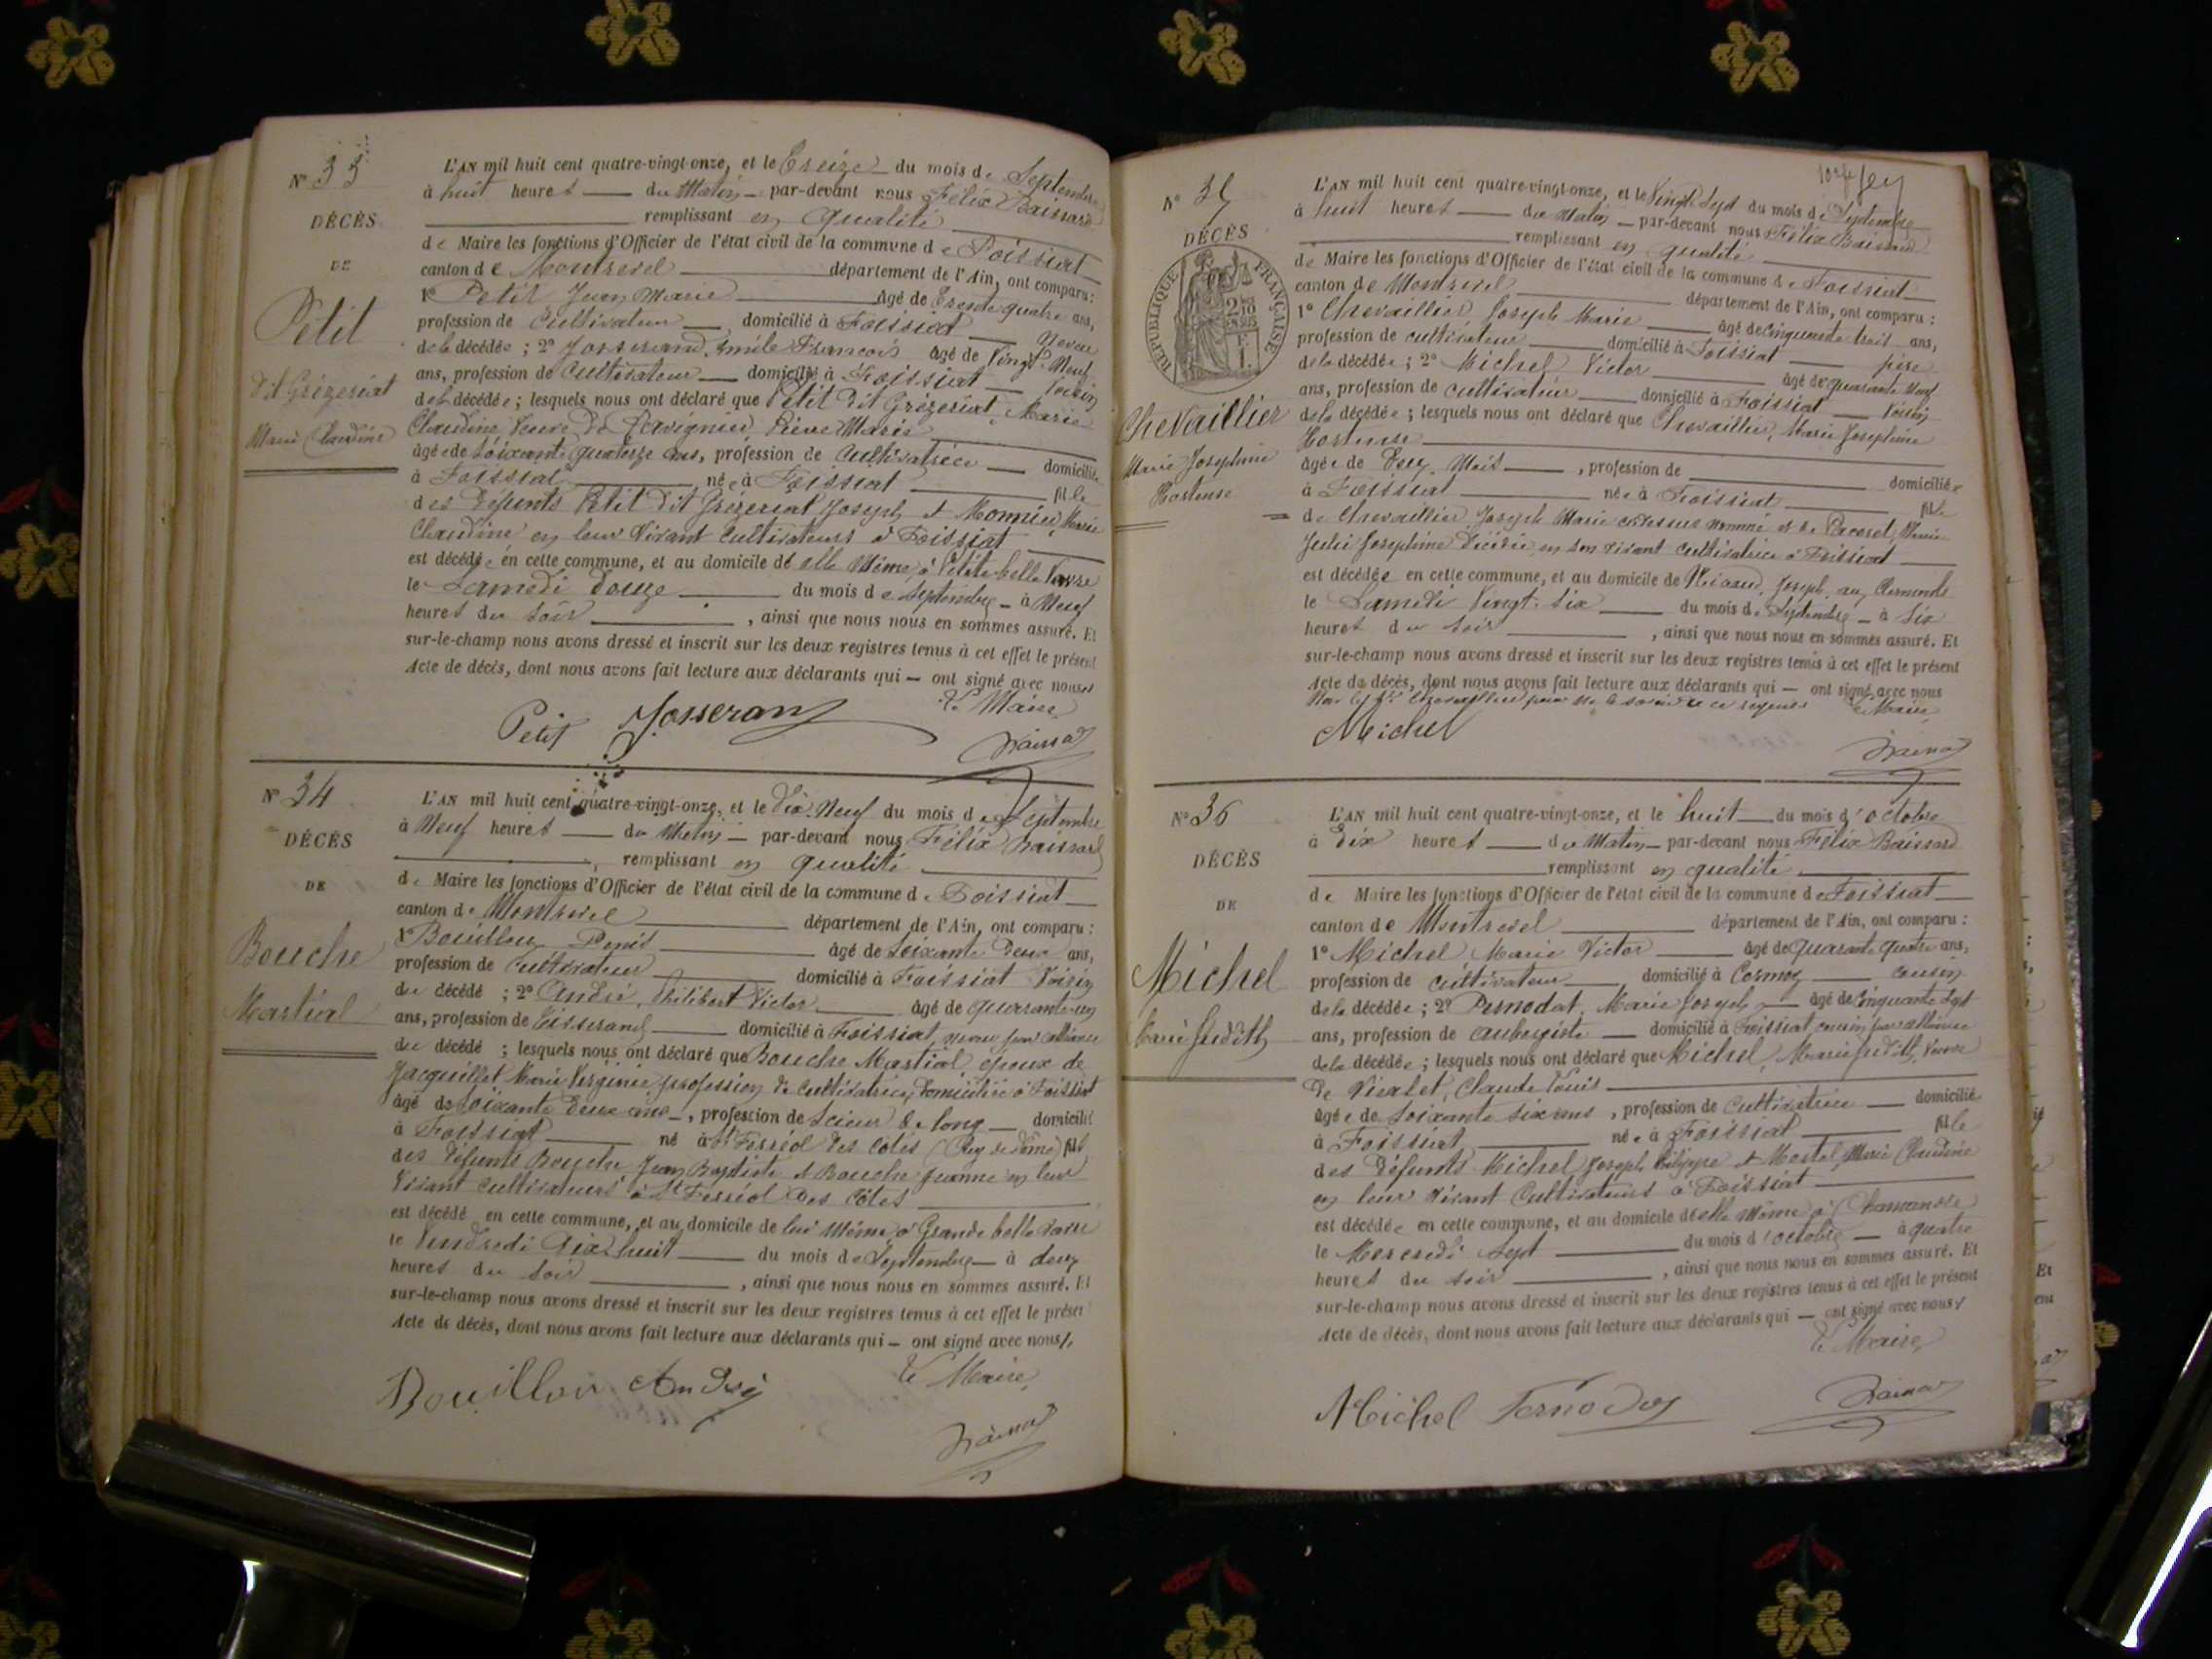 Nº 33
DÉCÈS
DE
Petit
dit Grézeriat
Marie Claudine
L'AN mil huit cent quatre-vingt-onze, et le Treize du mois de Septembre
à huit heures du Matin par-devant nous Félix Baissard
remplissant en qualité
de Maire les fonctions d'Officier de l'état civil de la commune de Foissiat
canton de Montrevel département de l'Ain, ont comparu :
1º Petit Jean Marie âgé de Trente quatre ans,
profession de Cultivateur domicilié à Foissiat Neveu
de la décédée ; 2º Josserand, Emile François âgé de Vingt-Neuf
ans, profession de Cultivateur domicilié à Foissiat Voisin
de la décédée ; lesquels nous ont déclaré que Petit dit Grézeriat, Marie
Claudine Veuve de
âgée de Soixante quatorze ans, profession de Cultivatrice domiciliée
à Foissiat née à Foissiat fille
des défunts Petit dit Grézeriat Joseph et Monnier, Marie
Claudine en leur Vivant Cultivateurs à Foissiat
est décédée en cette commune, et au domicile de elle Même, à Petite belle Vavre
le Samedi Douze du mois de Septembre à Neuf
heures du Soir , ainsi que nous nous en sommes assuré. Et
sur-le-champ nous avons dressé et inscrit sur les deux registres tenus à cet effet le présent
Acte de décès, dont nous avons fait lecture aux déclarants qui — ont signé avec nous
Le Maire
Petit Josserand
Nº 34
DÉCÈS
DE
Bouche
Martial
L'AN mil huit cent quatre-vingt-onze, et le Dix Neuf du mois de Septembre
à Neuf heures du Matin par-devant nous Félix Baissard
remplissant en qualité
de Maire les fonctions d'Officier de l'état civil de la commune de Foissiat
canton de Montrevel département de l'Ain, ont comparu :
1º Bouillon Denis âgé de Soixante Deux ans,
profession de Cultivateur domicilié à Foissiat Voisin
du décédé ; 2º André, Philibert Victor âgé de quarante-un
ans, profession de Tisserand domicilié à Foissiat, neveu par alliance
du décédé ; lesquels nous ont déclaré que Bouche Martial époux de
Jacquillet Marie Virginie profession de Cultivatrice, Domiciliée à Foissiat
âgé de Soixante Deux ans, profession de Scieur de long domicilié
à Foissiat né à St Ferréol des Côtes (Puy de dôme) fils
des défunts Bouche Jean Baptiste et Bouche Jeanne en leur
Vivant cultivateurs à St Ferréol des Côtes
est décédé en cette commune, et au domicile de lui Même à Grande belle Vavre
le Vendredi Dix huit du mois de Septembre à deux
heures du Soir , ainsi que nous nous en sommes assuré. Et
sur-le-champ nous avons dressé et inscrit sur les deux registres tenus à cet effet le présent
Acte de décès, dont nous avons fait lecture aux déclarants qui — ont signé avec nous
Le Maire
Bouillon André
Nº 35
DÉCÈS
RÉPUBLIQUE FRANÇAISE
Chevaillier
Marie Joséphine
Hortense
L'AN mil huit cent quatre-vingt-onze, et le Vingt Sept du mois de Septembre
à huit heures du Matin par-devant nous Félix Baissard
remplissant en qualité
de Maire les fonctions d'Officier de l'état civil de la commune de Foissiat
canton de Montrevel département de l'Ain, ont comparu :
1º Chevaillier Joseph Marie âgé de Cinquante trois ans,
profession de cultivateur domicilié à Foissiat père
de la décédée ; 2º Michel Victor âgé de quarante Neuf
ans, profession de cultivateur domicilié à Foissiat Voisin
de la décédée ; lesquels nous ont déclaré que Chevaillier, Marie Joséphine
Hortense
âgée de Mois , profession de domiciliée
à Foissiat née à Foissiat fille
de Chevaillier Joseph Marie ci-dessus nommé et de Pacoret, Marie
Julie Joséphine Décédée, en son vivant cultivatrice à Foissiat
est décédée en cette commune, et au domicile de Joseph, au
le Samedi Vingt-Six du mois de Septembre à Six
heures du Soir , ainsi que nous nous en sommes assuré. Et
sur-le-champ nous avons dressé et inscrit sur les deux registres tenus à cet effet le présent
Acte de décès, dont nous avons fait lecture aux déclarants qui — ont signé avec nous
Chevaillier pour ne le savoir de ce requis Le Maire
Michel
Nº 36
DÉCÈS
DE
Michel
Marie Judith
L'AN mil huit cent quatre-vingt-onze, et le huit du mois d'octobre
à Dix heures du Matin par-devant nous Félix Baissard
remplissant en qualité
de Maire les fonctions d'Officier de l'état civil de la commune de Foissiat
canton de Montrevel département de l'Ain, ont comparu :
1º Michel Marie Victor âgé de quarante quatre ans,
profession de cultivateur domicilié à Cormoz cousin
de la décédée ; 2º Pernodat, Marie Joseph âgé de Cinquante Sept
ans, profession de aubergiste domicilié à Foissiat cousin par alliance
de la décédée ; lesquels nous ont déclaré que Michel, Marie Judith, Veuve
de Vialet, Claude Louis
âgée de Soixante Six ans , profession de Cultivatrice domiciliée
à Foissiat née à Foissiat fille
des Défunts Michel, Joseph Philippe et Marie Claudine
en leur Vivant Cultivateurs à Foissiat
est décédée en cette commune, et au domicile de elle Même à
le Mercredi Sept du mois d'octobre à quatre
heures du soir , ainsi que nous nous en sommes assuré. Et
sur-le-champ nous avons dressé et inscrit sur les deux registres tenus à cet effet le présent
Acte de décès, dont nous avons fait lecture aux déclarants qui — ont signé avec nous
Le Maire
Michel Pernodat